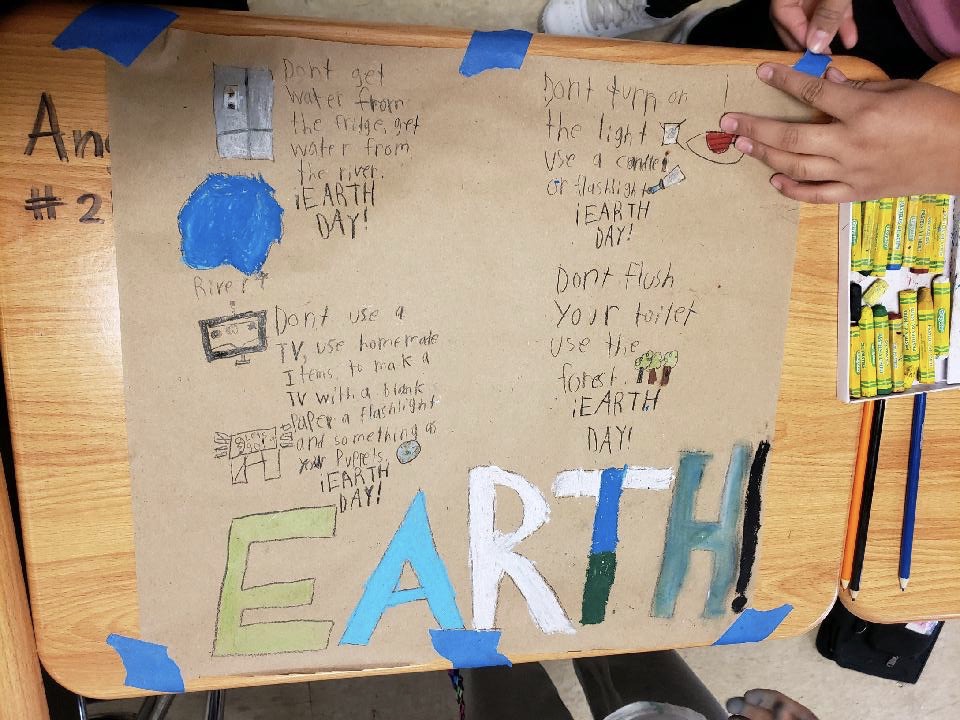 An
# 2
Dont get
Water from
the fridge, get
water from
the river.
¡EARTH
DAY!
River↑
Dont turn on
the light
use a candle
or flashlight
¡EARTH
DAY!
Dont use a
TV, use homemade
Items, to make a
TV with a blank
Paper a flashlight
and something as
Your Puppets.
¡EARTH
DAY!
Dont flush
Your toilet
use the
forest.
¡EARTH
DAY!
EARTH!